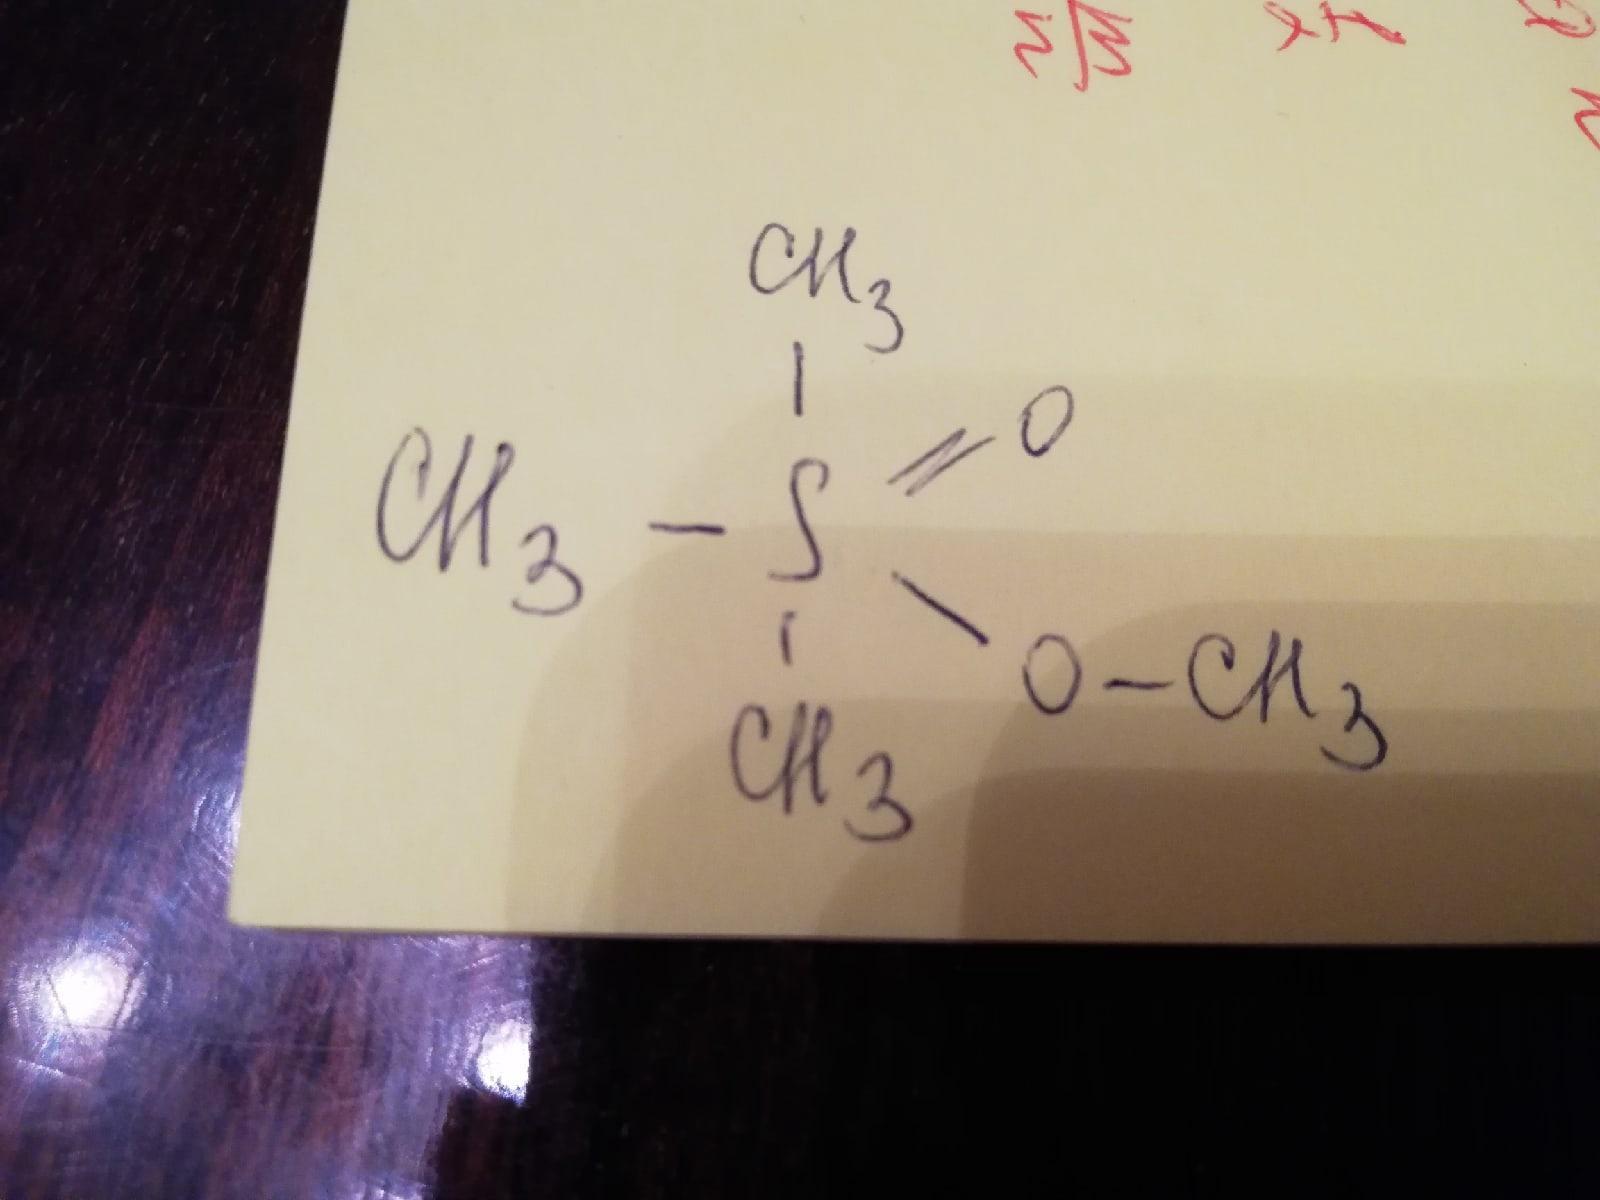 CH3
CH3 - S = O
O - CH3
CH3